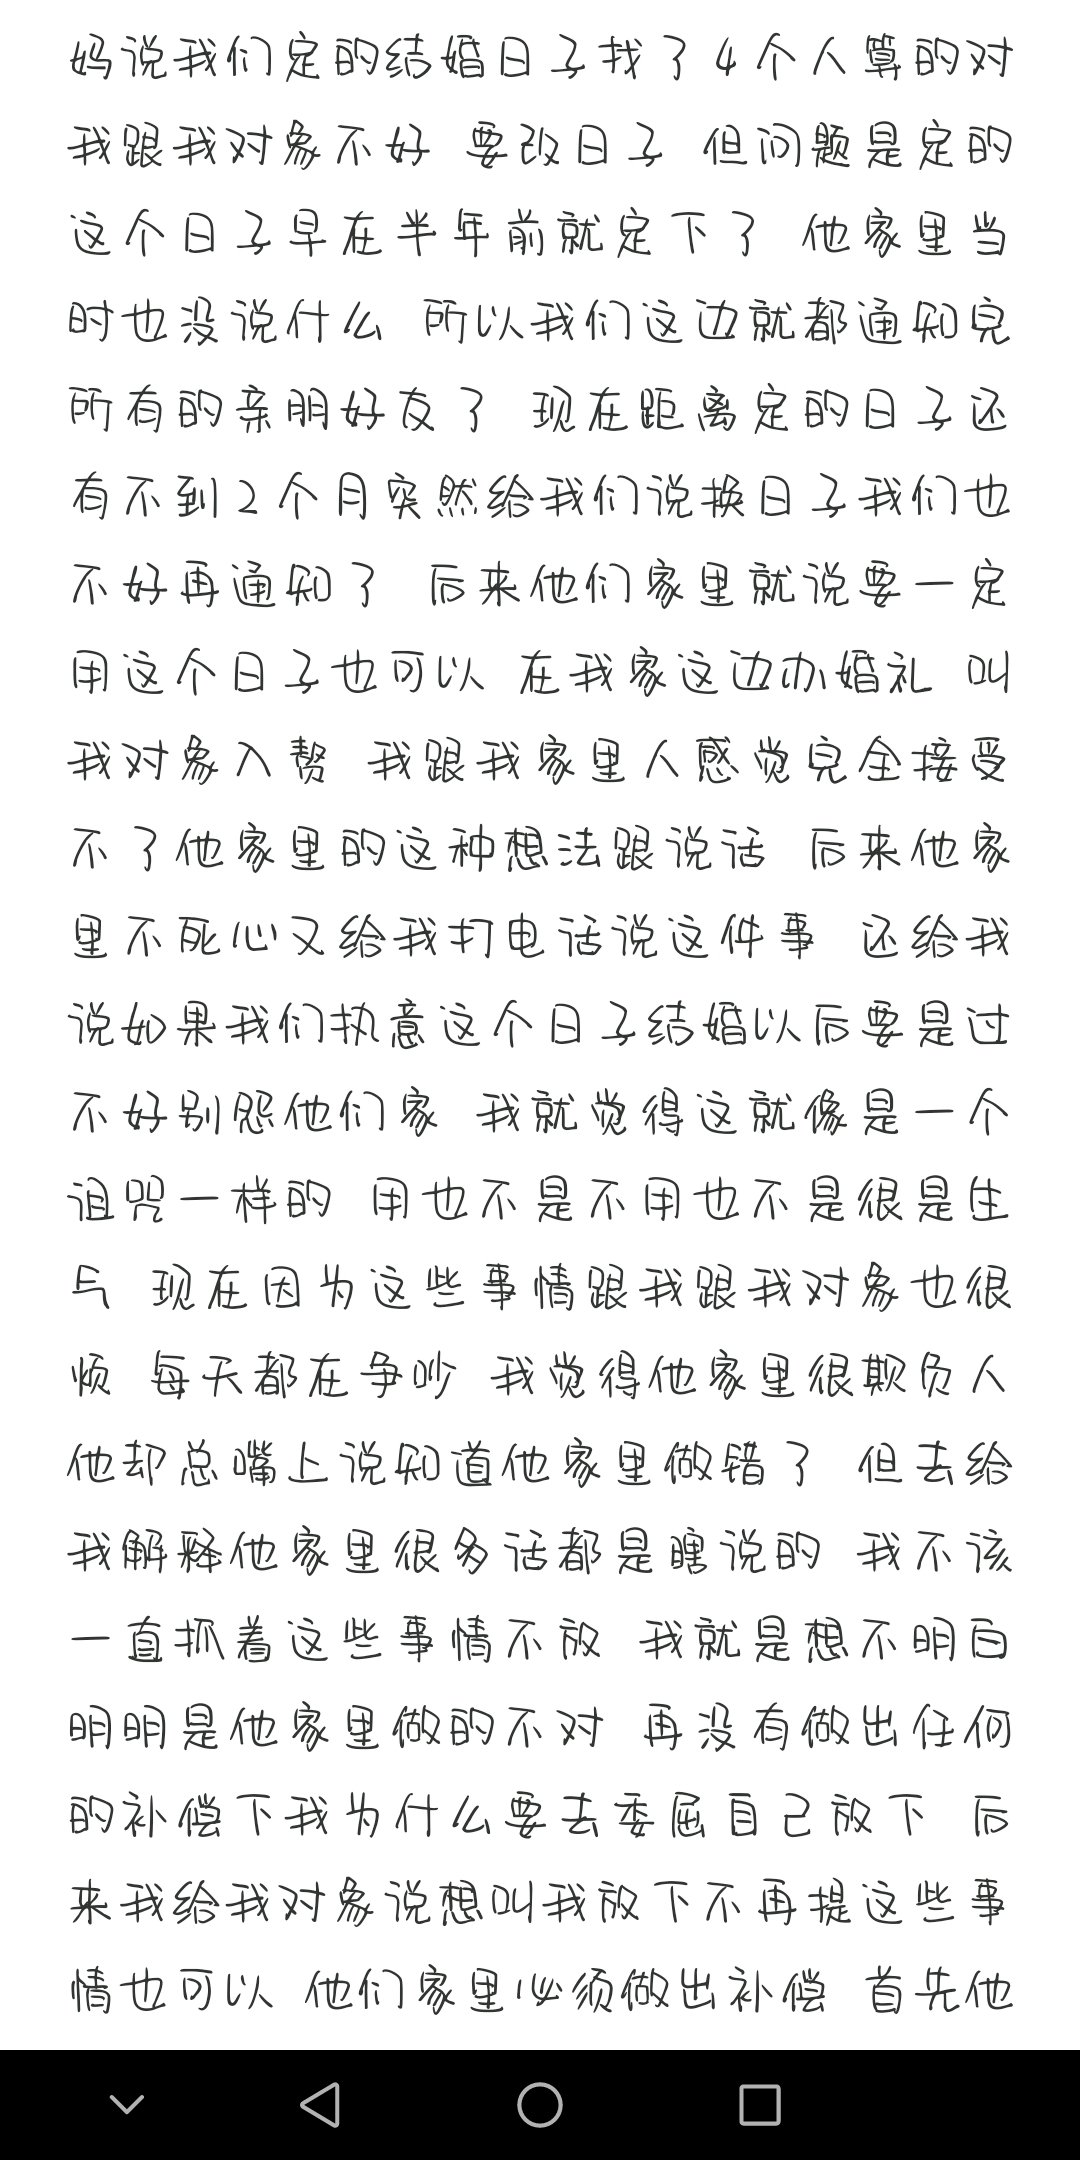 妈说我们定的结婚日子找了4个人算的对
我跟我对象不好 要改日子 但问题是定的
这个日子早在半年前就定下了 他家里当
时也没说什么 所以我们这边就都通知完
所有的亲朋好友了 现在距离定的日子还
有不到2个月突然给我们说换日子我们也
不好再通知了 后来他们家里就说要一定
用这个日子也可以 在我家这边办婚礼 叫
我对象入赘 我跟我家里人感觉完全接受
不了他家里的这种想法跟说话 后来他家
里不死心又给我打电话说这件事 还给我
说如果我们执意这个日子结婚以后要是过
不好别怨他们家 我就觉得这就像是一个
诅咒一样的 用也不是不用也不是很是生
气 现在因为这些事情跟我跟我对象也很
烦 每天都在争吵 我觉得他家里很欺负人
他却总嘴上说知道他家里做错了 但去给
我解释他家里很多话都是瞎说的 我不该
一直抓着这些事情不放 我就是想不明白
明明是他家里做的不对 再没有做出任何
的补偿下我为什么要去委屈自己放下 后
来我给我对象说想叫我放下不再提这些事
情也可以 他们家里必须做出补偿 首先他